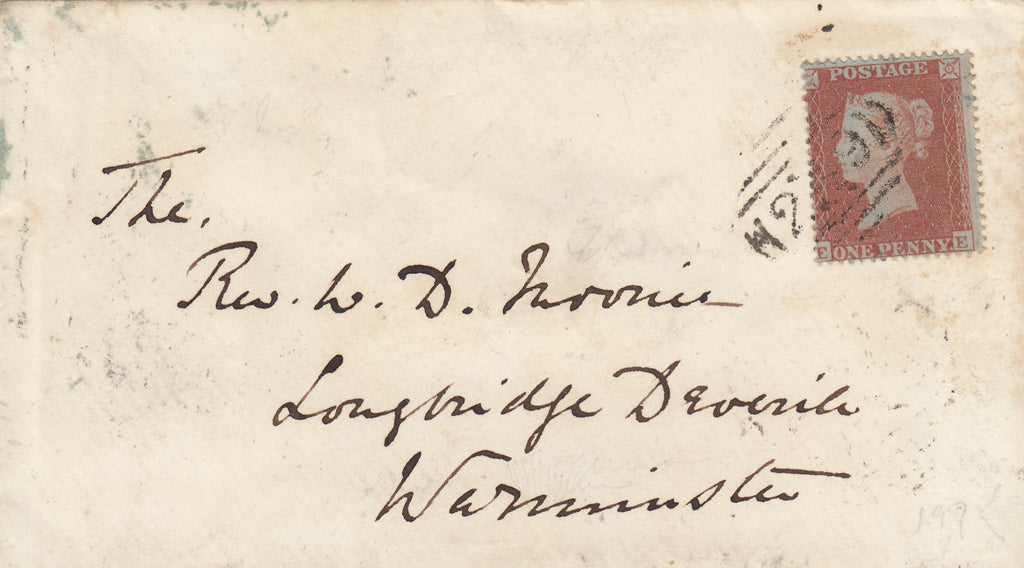 POSTAGE
ONE PENNY
E E
The.
Rev. W. D.
Longbridge Deverill
Warminster